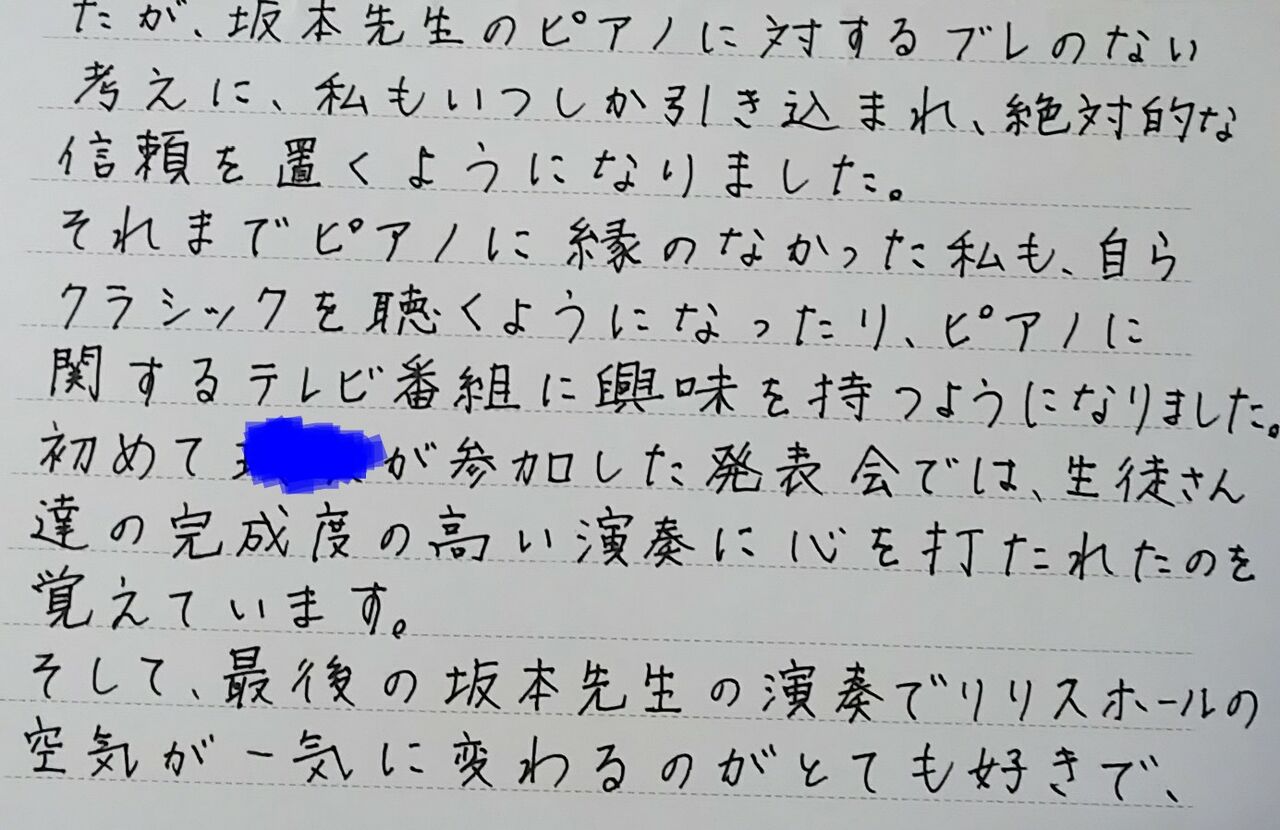 たが、坂本先生のピアノに対するブレのない
考えに、私もいつしか引き込まれ、絶対的な
信頼を置くようになりました。
それまでピアノに縁のなかった私も、自ら
クラシックを聴くようになったり、ピアノに
関するテレビ番組に興味を持つようになりました。
初めて が参加した発表会では、生徒さん
達の完成度の高い演奏に心を打たれたのを
覚えています。
そして、最後の坂本先生の演奏でリリスホールの
空気が一気に変わるのがとても好きで、